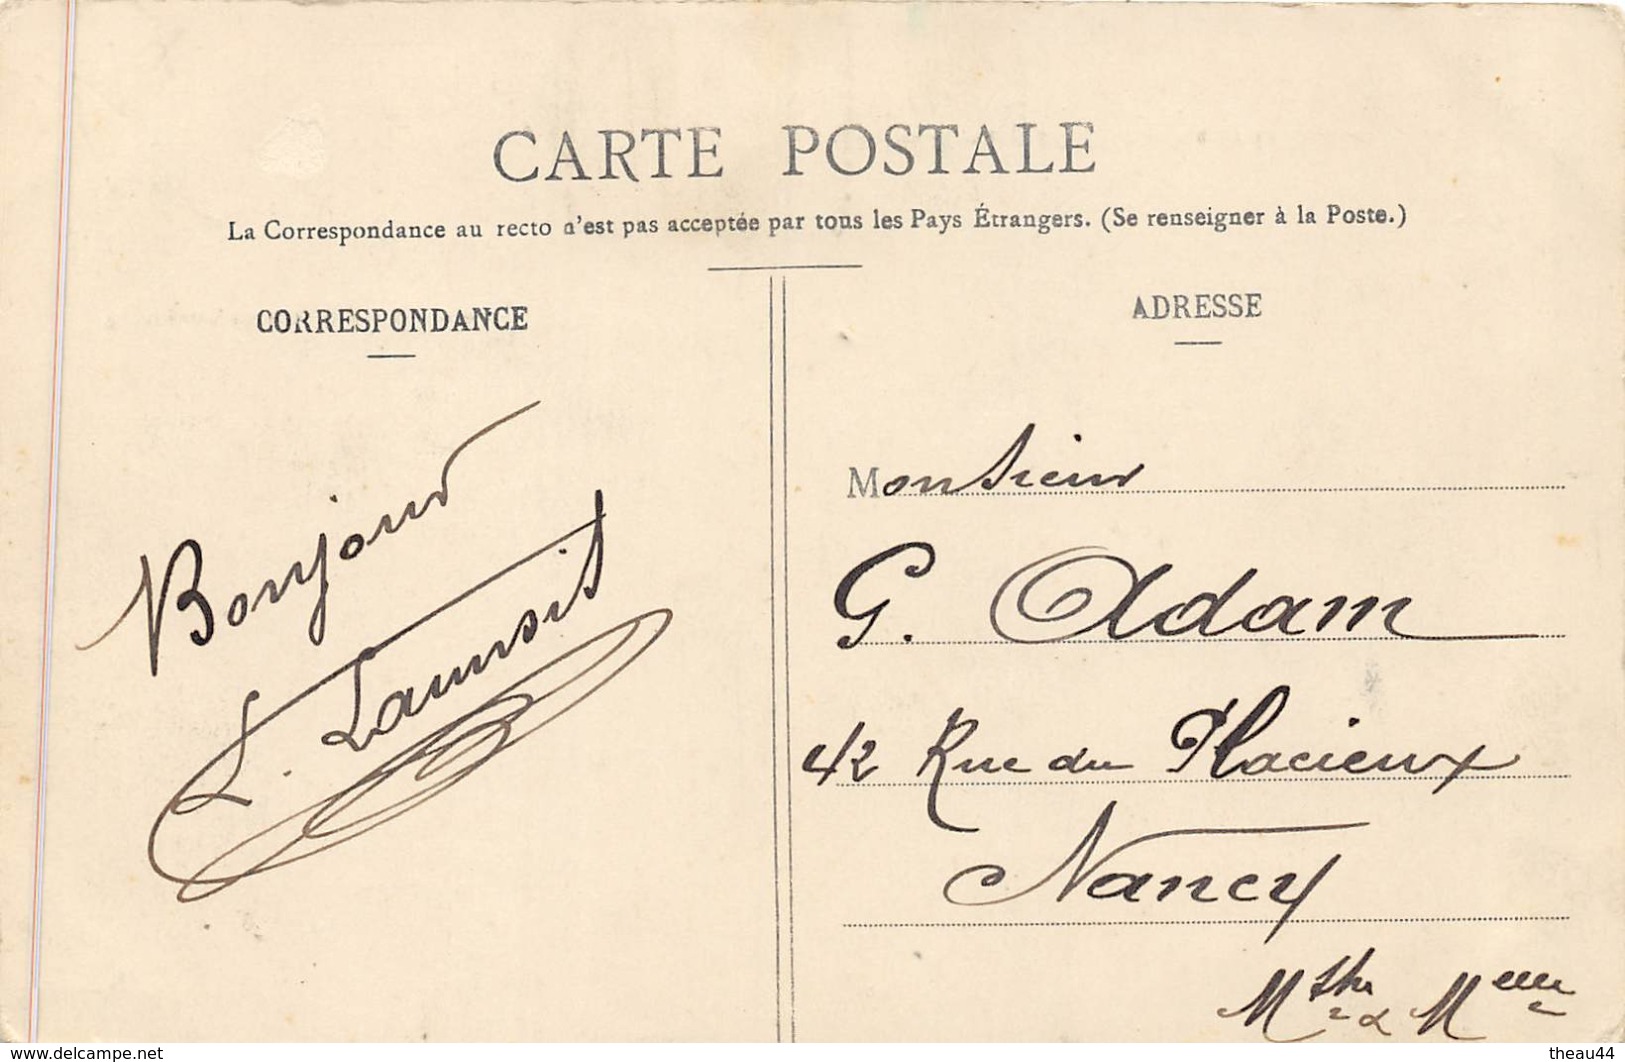 CARTE POSTALE
La Correspondance au recto n'est pas acceptée par tous les Pays Étrangers. (Se renseigner à la Poste.)
CORRESPONDANCE
Bonjour
L.
ADRESSE
Monsieur
G. Adam
42 Rue du Placieux
Nancy
Mthe & M
www.delcampe.net
theau44